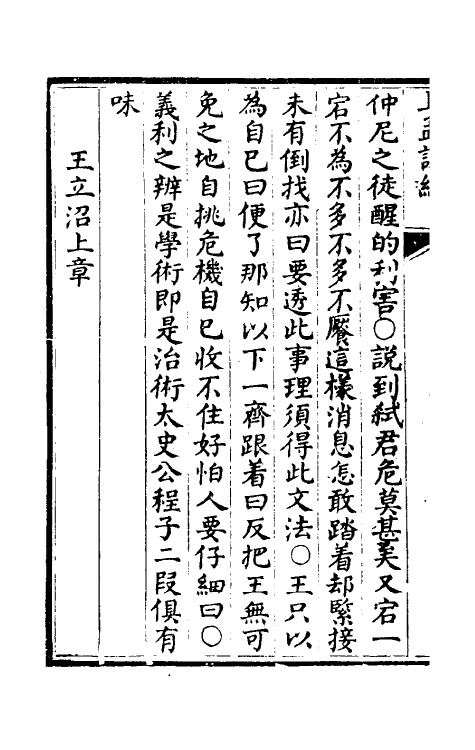 仲尼之徒醒的利害○說到弒君危莫甚矣又宕一
宕不為不多不多不饜這樣消息怎敢踏着却緊接
未有倒找亦曰要透此事理須得此文法○王只以
為自已曰便了那知以下一齊跟着曰反把王無可
免之地自挑危機自已收不住好怕人要仔細曰○
義利之辨是學術即是治術太史公程子二段俱有
味
王立沼上章